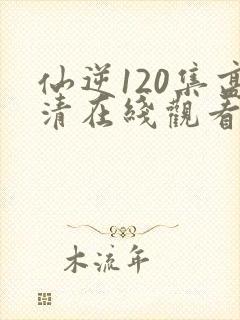 仙逆120集高
清在綫觀看
木流年